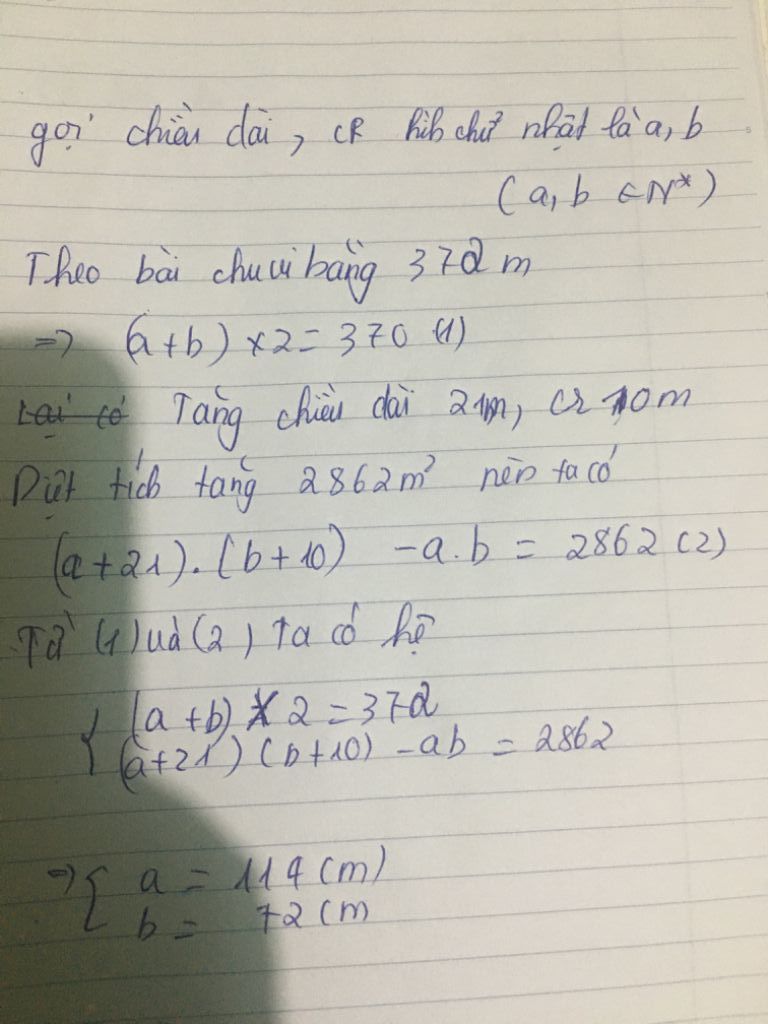 gọi chiều dài, CR hih chữ nhật là a, b
(a, b ∈ N*)
Theo bài chu vi bằng 372 m
=> (a + b) × 2 = 370 (1)
Lại có Tăng chiều dài 21m, CR 10m
Diệt tích tăng 2862m² nên ta có
(a + 21).(b + 10) - a.b = 2862 (2)
Từ (1) và (2) Ta có hệ
{ (a + b) × 2 = 372
(a + 21)(b + 10) - ab = 2862
=> { a = 114 (m)
b = 72 (m